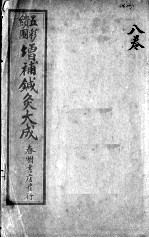 八卷
五彩
繪圖
增補鍼灸大成
春明書店發行